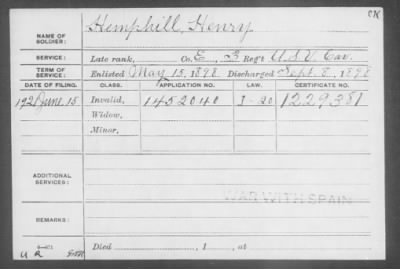 CK
NAME OF SOLDIER: Hemphill, Henry
SERVICE: Late rank, Co. E, 3 Reg't U.S.V. Cav.
TERM OF SERVICE: Enlisted May 15, 1898 Discharged Sept. 8, 1898
DATE OF FILING. CLASS. APPLICATION NO. LAW. CERTIFICATE NO.
1920 June 15 Invalid, 1452040 I-20 1229381
Widow,
Minor,
ADDITIONAL SERVICES:
WAR WITH SPAIN
REMARKS:
Died , 1 , at